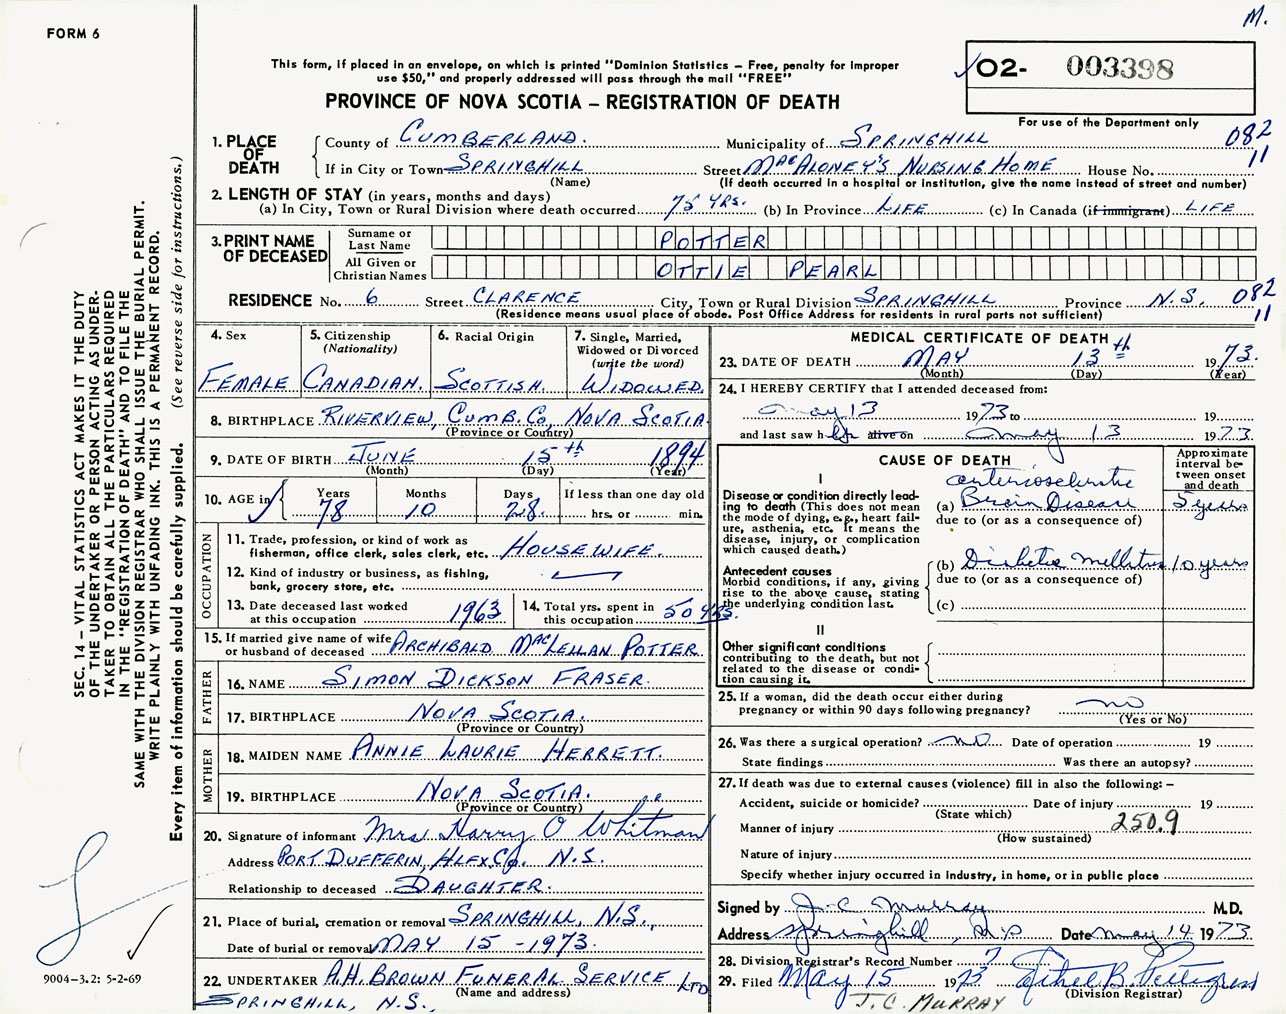 M.
FORM 6
This form, if placed in an envelope, on which is printed "Dominion Statistics — Free, penalty for improper
use $50," and properly addressed will pass through the mail "FREE"
PROVINCE OF NOVA SCOTIA — REGISTRATION OF DEATH
✓O2- 003398
For use of the Department only
SEC. 14 — VITAL STATISTICS ACT MAKES IT THE DUTY
OF THE UNDERTAKER OR PERSON ACTING AS UNDER-
TAKER TO OBTAIN ALL THE PARTICULARS REQUIRED
IN THE "REGISTRATION OF DEATH" AND TO FILE THE
SAME WITH THE DIVISION REGISTRAR WHO SHALL ISSUE THE BURIAL PERMIT.
WRITE PLAINLY WITH UNFADING INK. THIS IS A PERMANENT RECORD.
Every item of information should be carefully supplied. (See reverse side for instructions.)
1. PLACE OF DEATH County of CUMBERLAND. Municipality of SPRINGHILL 082
If in City or Town SPRINGHILL Street MacALONEY'S NURSING HOME House No. 11
(Name) (If death occurred in a hospital or institution, give the name instead of street and number)
2. LENGTH OF STAY (in years, months and days)
(a) In City, Town or Rural Division where death occurred 75 YRS. (b) In Province LIFE (c) In Canada (if immigrant) LIFE
3. PRINT NAME OF DECEASED Surname or Last Name POTTER
All Given or Christian Names OTTIE PEARL
RESIDENCE No. 6 Street CLARENCE City, Town or Rural Division SPRINGHILL Province N.S. 082
(Residence means usual place of abode. Post Office Address for residents in rural parts not sufficient) 11
4. Sex 5. Citizenship (Nationality) 6. Racial Origin 7. Single, Married, Widowed or Divorced (write the word)
FEMALE CANADIAN. SCOTTISH. WIDOWED.
8. BIRTHPLACE RIVERVIEW, CUMB. CO, NOVA SCOTIA
(Province or Country)
9. DATE OF BIRTH JUNE 15th 1894
(Month) (Day) (Year)
10. AGE in Years Months Days If less than one day old
78 10 28 hrs. or min.
OCCUPATION
11. Trade, profession, or kind of work as
fisherman, office clerk, sales clerk, etc. HOUSEWIFE.
12. Kind of industry or business, as fishing,
bank, grocery store, etc.
13. Date deceased last worked at this occupation 1963 14. Total yrs. spent in this occupation 50 YRS.
15. If married give name of wife or husband of deceased ARCHIBALD MacLELLAN POTTER
FATHER
16. NAME SIMON DICKSON FRASER.
17. BIRTHPLACE NOVA SCOTIA.
(Province or Country)
MOTHER
18. MAIDEN NAME ANNIE LAURIE HERRETT.
19. BIRTHPLACE NOVA SCOTIA.
(Province or Country)
20. Signature of informant Mrs Harry O Whitman
Address PORT DUFFERIN, HLFX. CO. N.S.
Relationship to deceased DAUGHTER.
21. Place of burial, cremation or removal SPRINGHILL, N.S.,
Date of burial or removal MAY 15 - 1973.
22. UNDERTAKER A.H. BROWN FUNERAL SERVICE LTD
(Name and address)
SPRINGHILL, N.S.,
MEDICAL CERTIFICATE OF DEATH
23. DATE OF DEATH MAY 13th 1973.
(Month) (Day) (Year)
24. I HEREBY CERTIFY that I attended deceased from:
May 13 1973 to 19
and last saw her alive on May 13 1973.
CAUSE OF DEATH Approximate interval between onset and death
I
Disease or condition directly lead-
ing to death (This does not
mean the mode of dying, e.g., heart fail-
ure, asthenia, etc. It means the
disease, injury, or complication
which caused death.)
arteriosclerotic
(a) Brain Disease 5 years
due to (or as a consequence of)
Antecedent causes
Morbid conditions, if any, giving
rise to the above cause, stating
the underlying condition last.
(b) Diabetes mellitus 10 years
due to (or as a consequence of)
(c)
II
Other significant conditions
contributing to the death, but not
related to the disease or condi-
tion causing it.
25. If a woman, did the death occur either during
pregnancy or within 90 days following pregnancy? no
(Yes or No)
26. Was there a surgical operation? no Date of operation 19
State findings Was there an autopsy?
27. If death was due to external causes (violence) fill in also the following: —
Accident, suicide or homicide? Date of injury 19
(State which)
Manner of injury 250.9
(How sustained)
Nature of injury
Specify whether injury occurred in industry, in home, or in public place
Signed by J. C. Murray M.D.
Address Springhill, N.S. Date May 14 1973
28. Division Registrar's Record Number 7
29. Filed May 15 1973 Ethel B. Pettigrew
(Division Registrar)
J.C. MURRAY
9004-3.2: 5-2-69